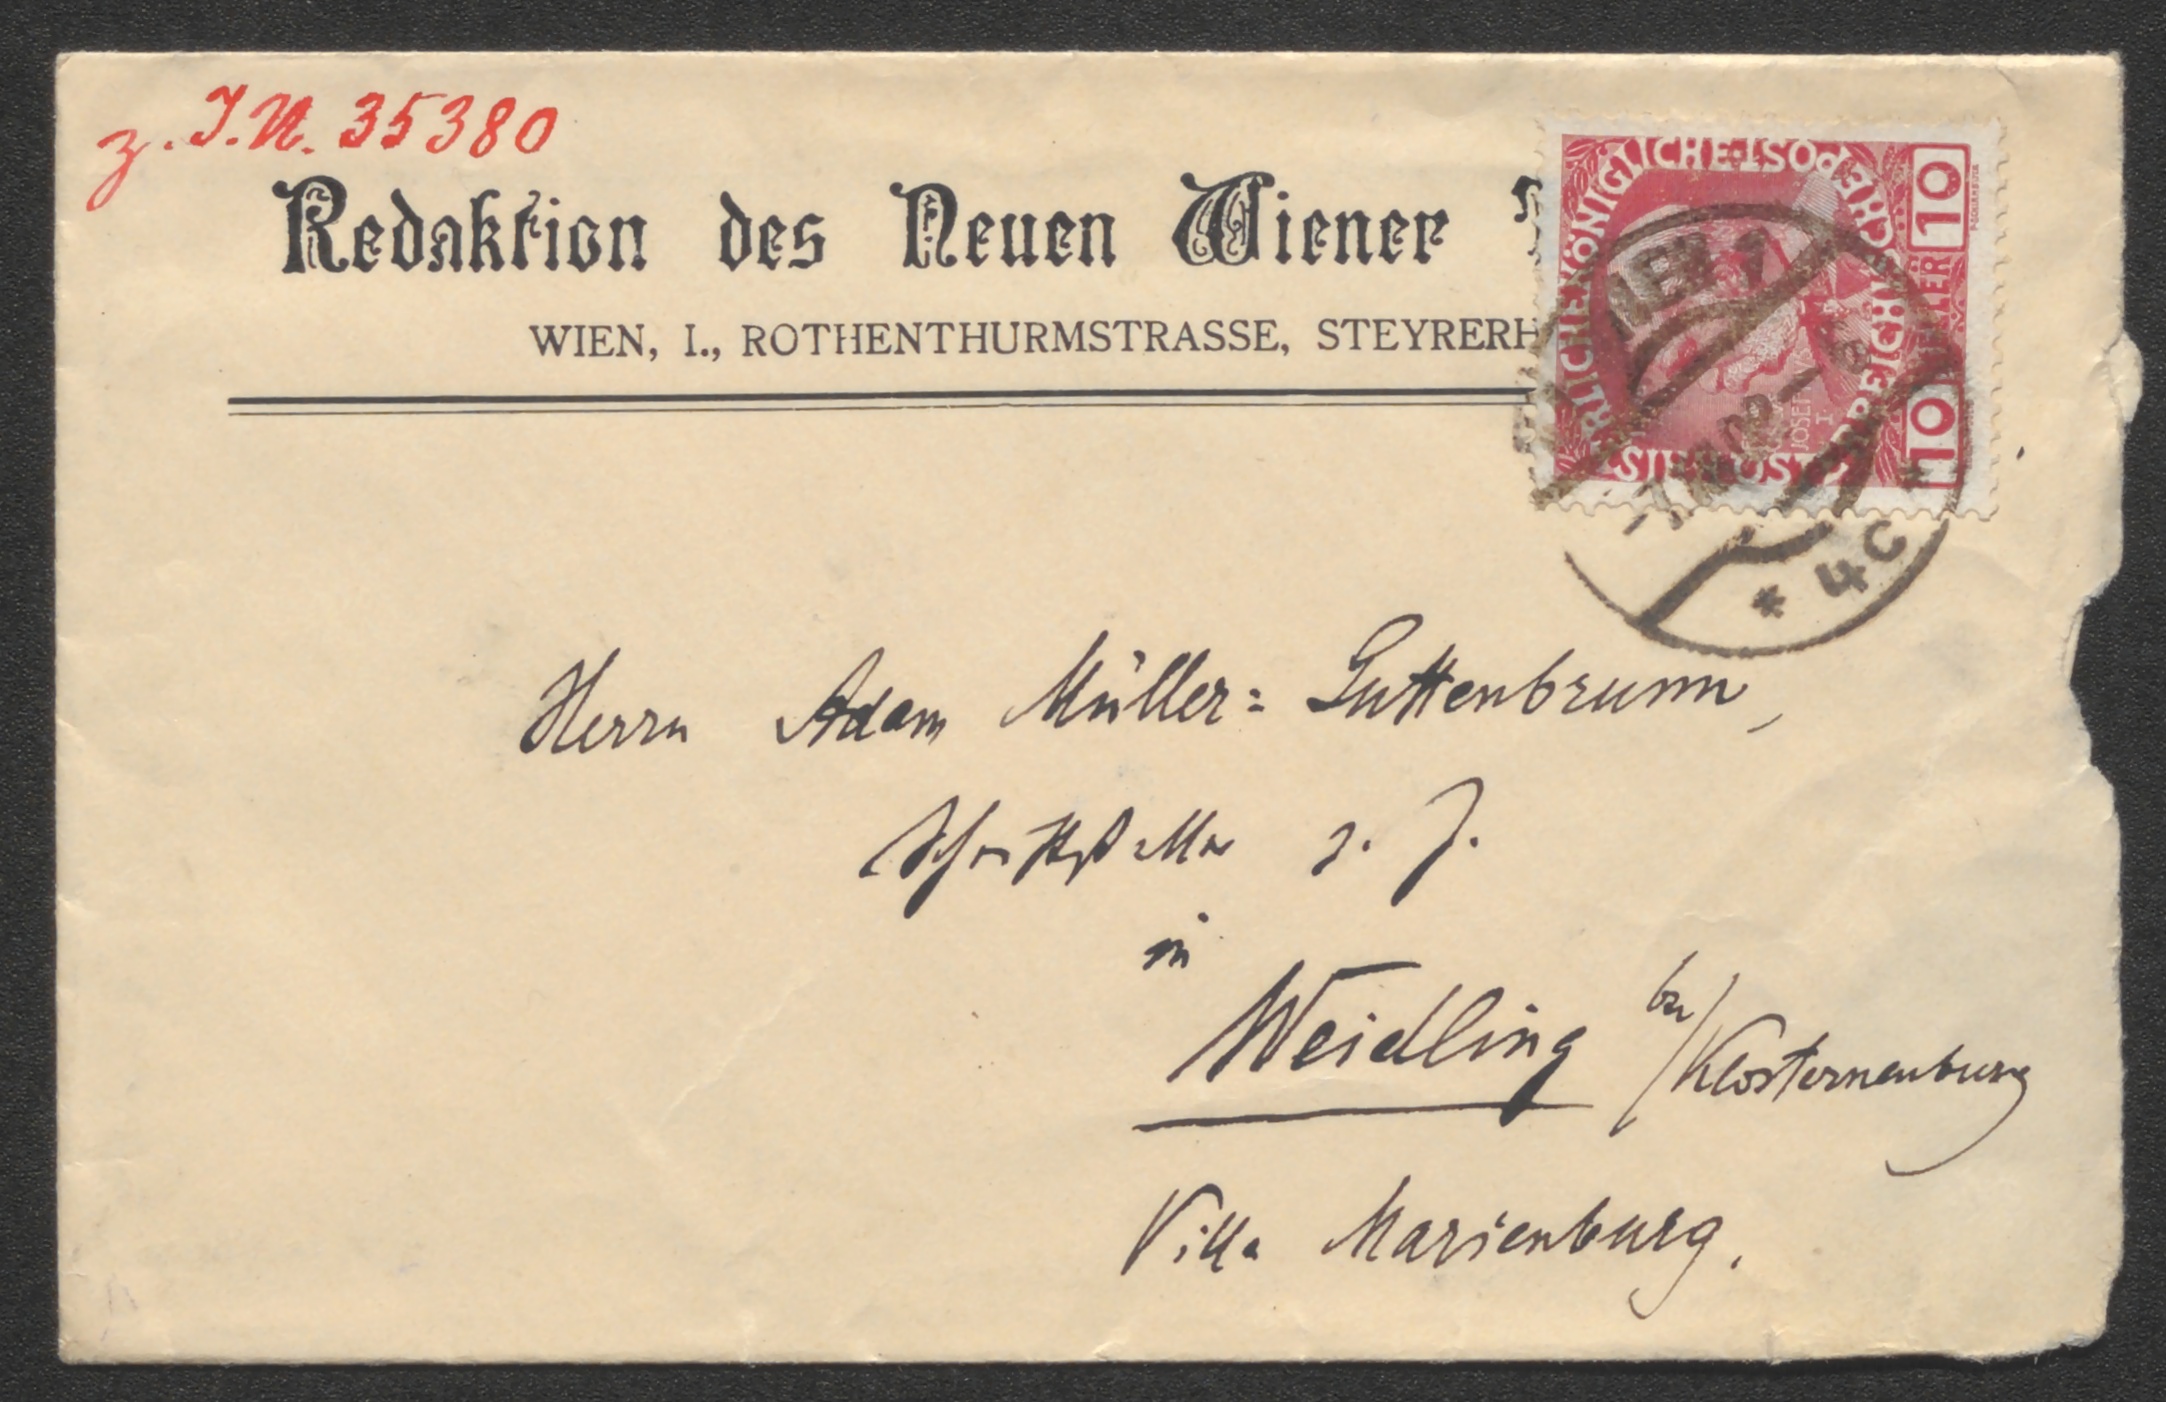 z. I.N. 35380
Redaktion des Neuen Wiener
WIEN, I., ROTHENTHURMSTRASSE, STEYRERH
KÖNIGLICHE ÖSTERREICHISCHE POST
10 HELLER 10
WIEN 1
* 4c
Herrn Adam Müller-Guttenbrunn,
Schriftsteller z. Z.
in
Weidling bei/Klosterneuburg
Villa Marienburg.